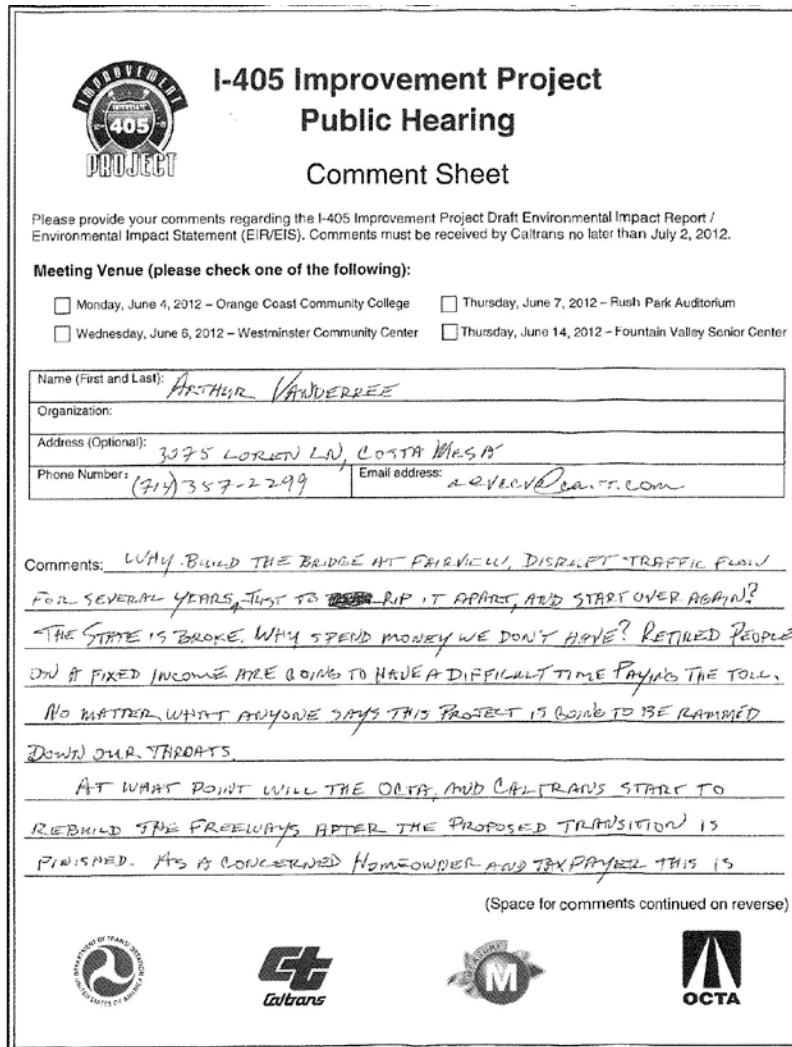 IMPROVEMENT
INTERSTATE
405
PROJECT
I-405 Improvement Project
Public Hearing
Comment Sheet
Please provide your comments regarding the I-405 Improvement Project Draft Environmental Impact Report /
Environmental Impact Statement (EIR/EIS). Comments must be received by Caltrans no later than July 2, 2012.
Meeting Venue (please check one of the following):
Monday, June 4, 2012 – Orange Coast Community College
Thursday, June 7, 2012 – Rush Park Auditorium
Wednesday, June 6, 2012 – Westminster Community Center
Thursday, June 14, 2012 – Fountain Valley Senior Center
Name (First and Last): ARTHUR VANDERREE
Organization:
Address (Optional): 3075 LOREN LN, COSTA MESA
Phone Number: (714) 357-2299
Email address:
Comments: WHY BUILD THE BRIDGE AT FAIRVIEW, DISRUPT TRAFFIC FLOW
FOR SEVERAL YEARS, JUST TO RIP IT APART, AND START OVER AGAIN?
THE STATE IS BROKE. WHY SPEND MONEY WE DON'T HAVE? RETIRED PEOPLE
ON A FIXED INCOME ARE GOING TO HAVE A DIFFICULT TIME PAYING THE TOLL.
NO MATTER WHAT ANYONE SAYS THIS PROJECT IS GOING TO BE RAMMED
DOWN OUR THROATS.
AT WHAT POINT WILL THE OCTA, AND CALTRANS START TO
REBUILD THE FREEWAYS AFTER THE PROPOSED TRANSITION IS
FINISHED. AS A CONCERNED HOMEOWNER AND TAXPAYER THIS IS
(Space for comments continued on reverse)
DEPARTMENT OF TRANSPORTATION
UNITED STATES OF AMERICA
Caltrans
MEASURE
M
OCTA